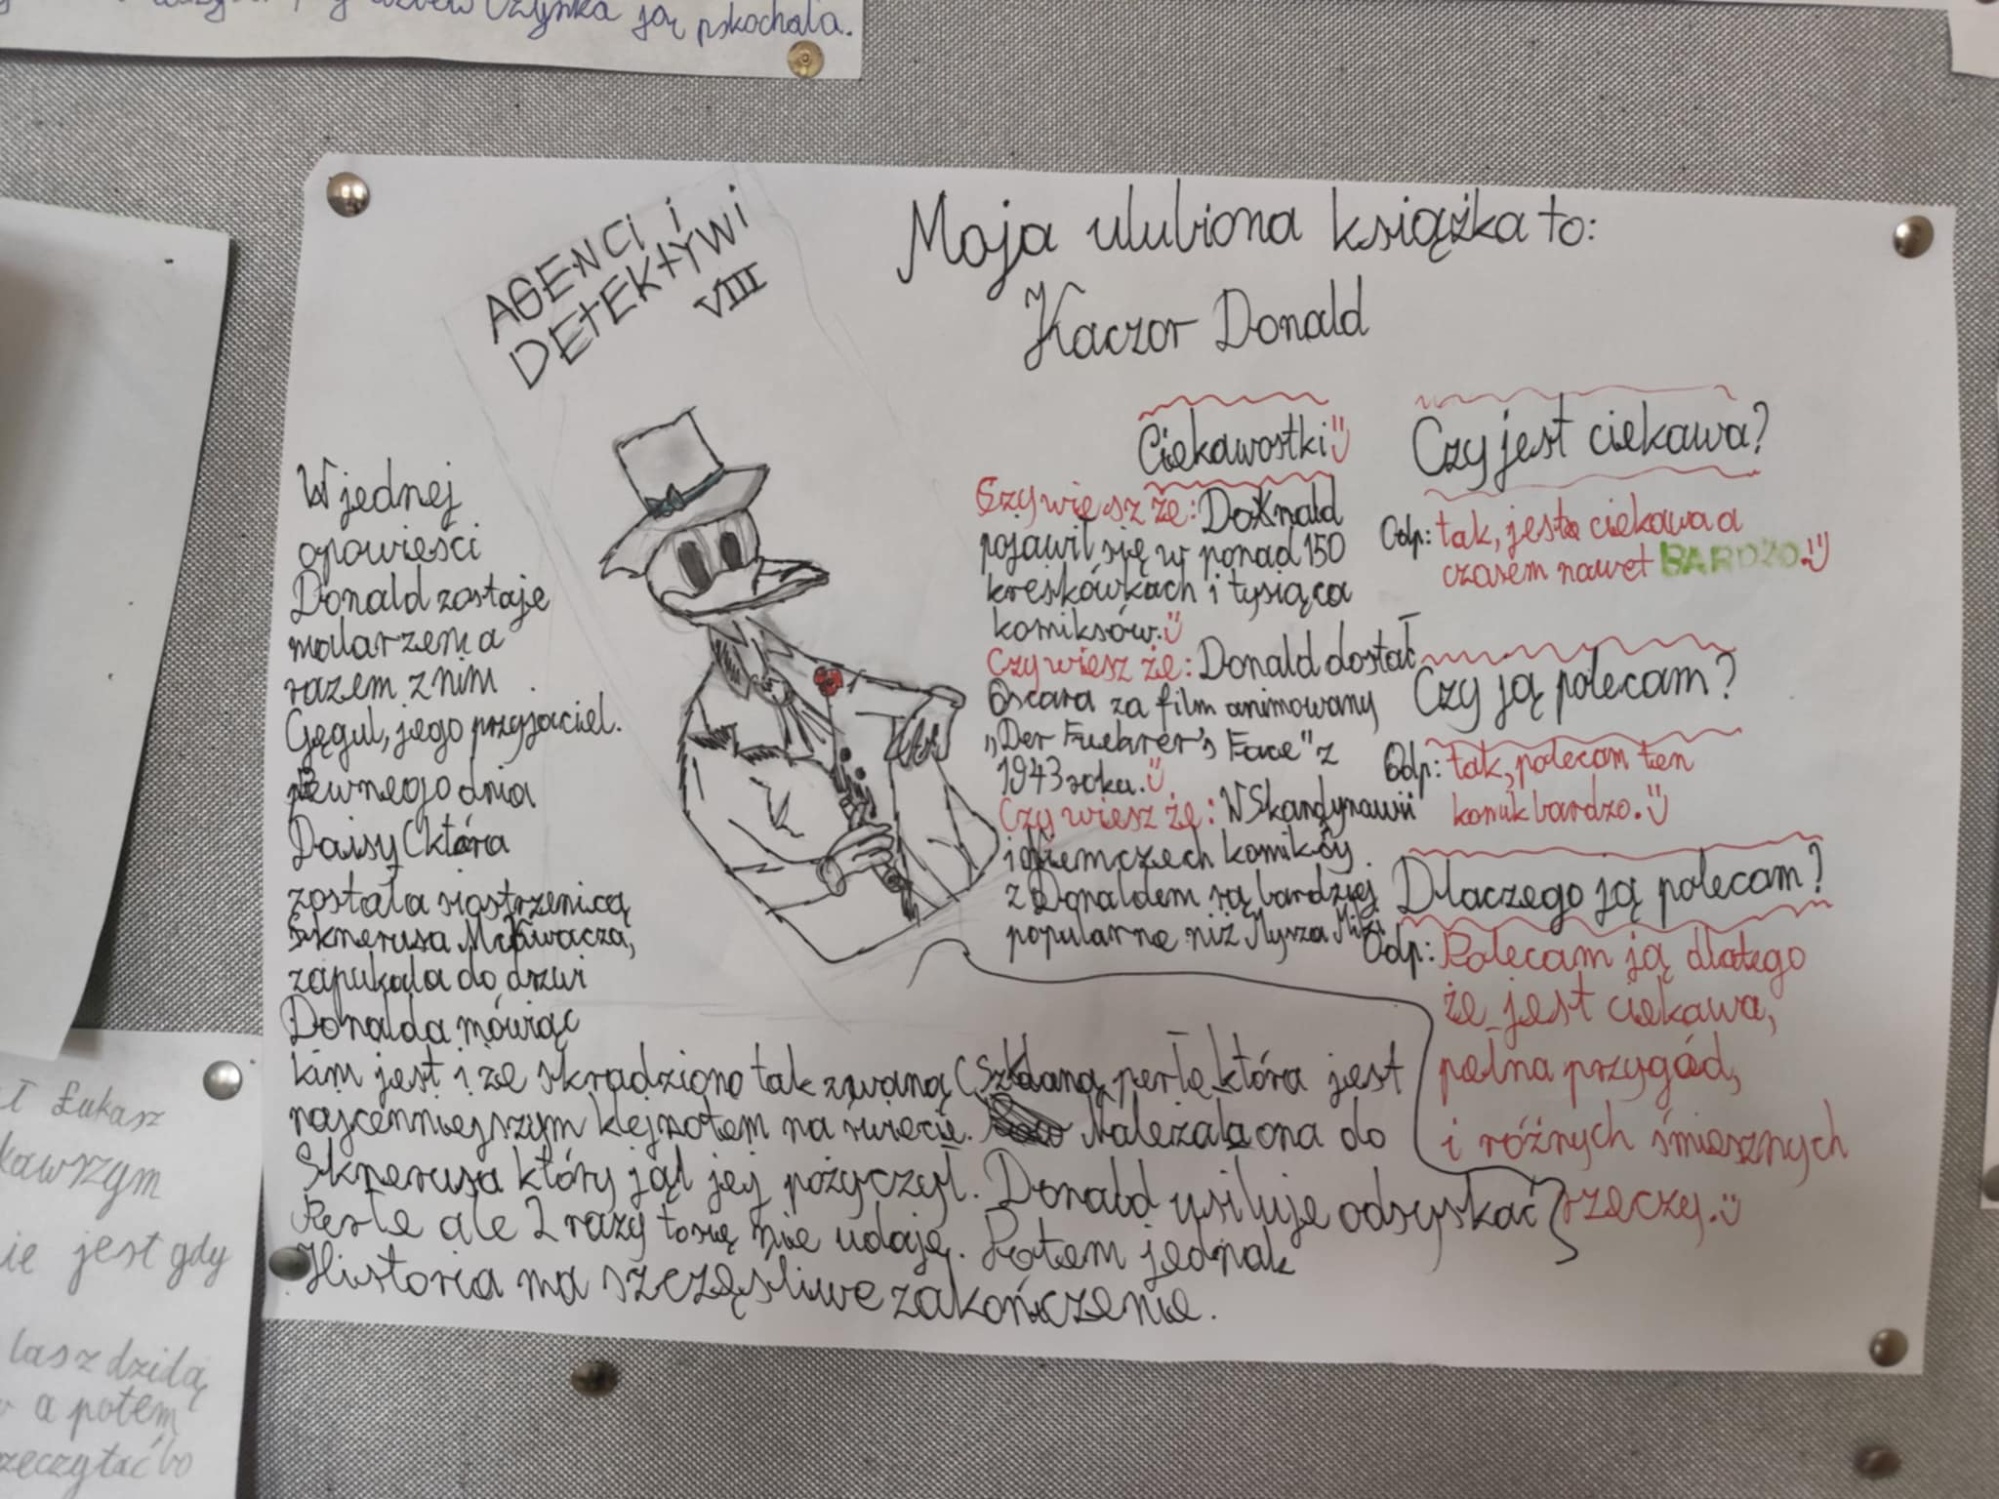 ją pskochała.
AGENCI i
DETEKTYWI
VIII
Moja ulubiona książka to:
Kaczor Donald
W jednej
opowieści
Donald zostaje
malarzem a
razem z nim
Gęgul, jego przyjaciel.
pewnego dnia
Daisy (która
została siostrzenicą
Sknerusa McKwacza,
zapukała do drzwi
Donalda mówiąc
kim jest i że skradziono tak zwaną (Szklaną perłę która jest
najcenniejszym klejnotem na świecie. Należała ona do
Sknerusa który jął jej pożyczył. Donald usiłuje odzyskać
Perłe ale 2 razy to się nie udaje. Potem jednak
Historia ma szczęśliwe zakończenie.
Ciekawostki
Czy wiesz że: Donald
pojawił się w ponad 150
kreskówkach i tysiąca
komiksów.
Czy wiesz że: Donald dostał
Oscara za film animowany
„Der Fuehrer's Face" z
1943 roku.
Czy wiesz że: W Skandynawii
i Niemczech komiksy
z Donaldem są bardziej
popularne niż Myszka Miki
Czy jest ciekawa?
Odp: tak, jest ciekawa a
czasem nawet BARDZO
Czy ją polecam?
Odp: tak, polecam ten
komik bardzo.
Dlaczego ją polecam?
Odp: Polecam ją dlatego
że jest ciekawa,
pełna przygód,
i różnych śmiesznych
rzeczy.
Łukasz
kawszym
ie jest gdy
a potem